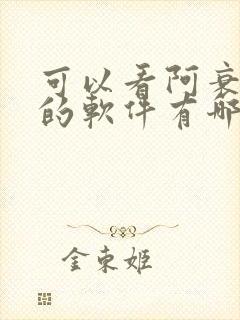 可以看阿衰
的軟件有哪
金東姬